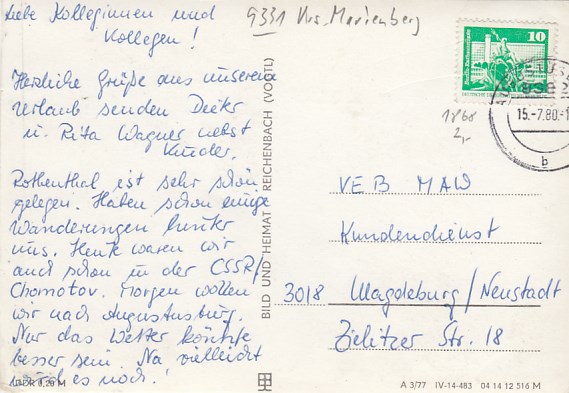 Liebe Kolleginnen und
Kollegen!
Herzliche Grüße aus unserem
Urlaub senden Dieter
u. Rita Wagner nebst
Kinder.
Rothenthal ist sehr schön
gelegen. Haben schon einige
Wanderungen hinter
uns. Heute waren wir
auch schon in der CSSR/
Chomotov. Morgen wollen
wir nach Augustusburg.
Nur das Wetter könnte
besser sein. Na vielleicht
wird es noch!
DDR 0,20 M
BILD UND HEIMAT REICHENBACH (VOGTL)
9331 Krs. Marienberg
10
1868
2,-
15.-7.80.-1
b
VEB MAW
Kundendienst
3018 Magdeburg/Neustadt
Zielitzer Str. 18
A 3/77 IV-14-483 04 14 12 516 M